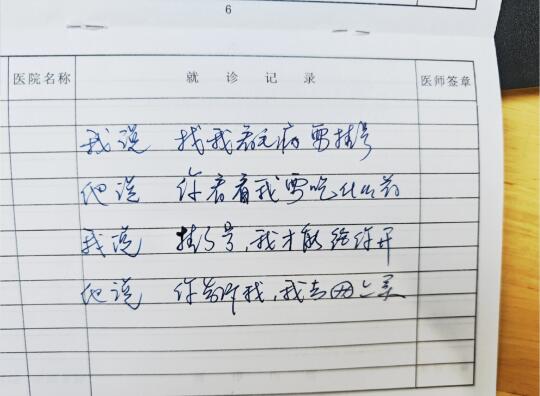 6
医院名称 就诊记录 医师签章
我说 找我看毛病要挂号
他说 你看看我要吃什么药
我说 挂了号,我才能给你开
他说 你告诉我,我去网上买